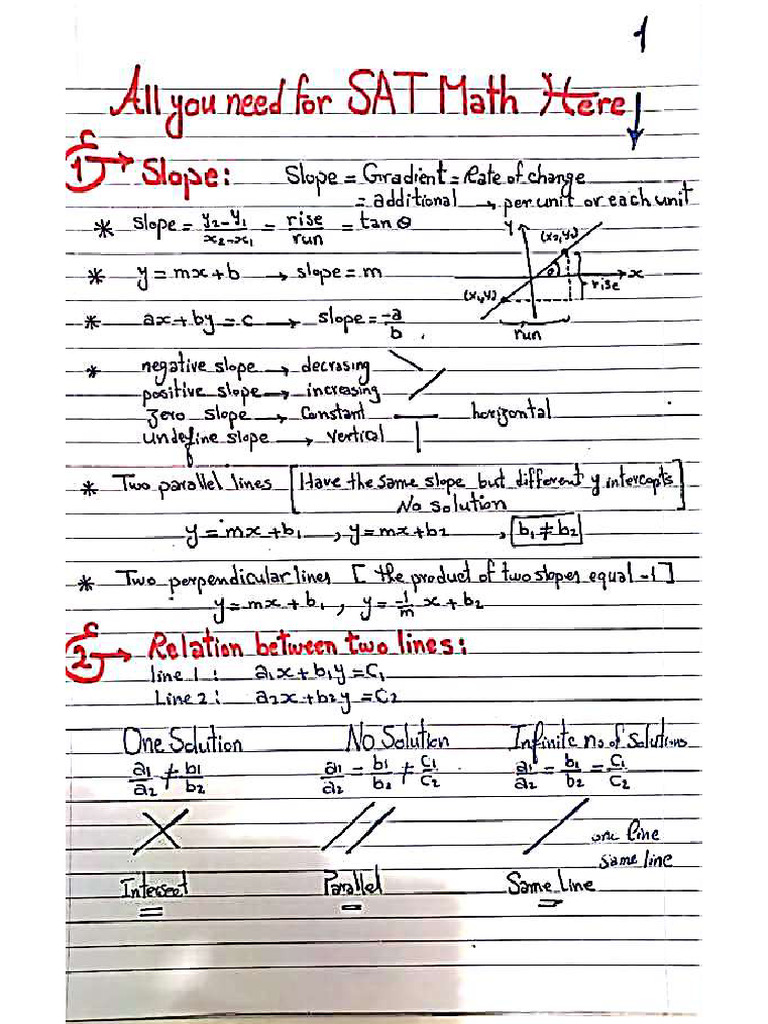 1
All you need for SAT Math Here ↓
1 → Slope: Slope = Gradient = Rate of change
= additional → per unit or each unit
* slope = y₂-y₁/x₂-x₁ = rise/run = tan θ
y (x₂,y₂)
* y = mx + b → slope = m
x
θ rise
(x₁,y₁)
* ax + by = c → slope = -a/b .
run
* negative slope → decrasing
positive slope → increasing
Zero slope → Constant horizontal
undefine slope → vertical
* Two parallel lines [Have the same slope but different y intercepts]
No solution
y = mx + b₁ , y = mx + b₂ , b₁ ≠ b₂
* Two perpendicular lines [ the product of two slopes equal -1]
y = mx + b₁ , y = -1/m x + b₂
2 → Relation between two lines:
line 1 : a₁x + b₁y = C₁
Line 2 : a₂x + b₂y = C₂
One Solution No Solution Infinite no of solutions
a₁/a₂ ≠ b₁/b₂ a₁/a₂ = b₁/b₂ ≠ C₁/C₂ a₁/a₂ = b₁/b₂ = C₁/C₂
one line
same line
Intersect Parallel Same Line